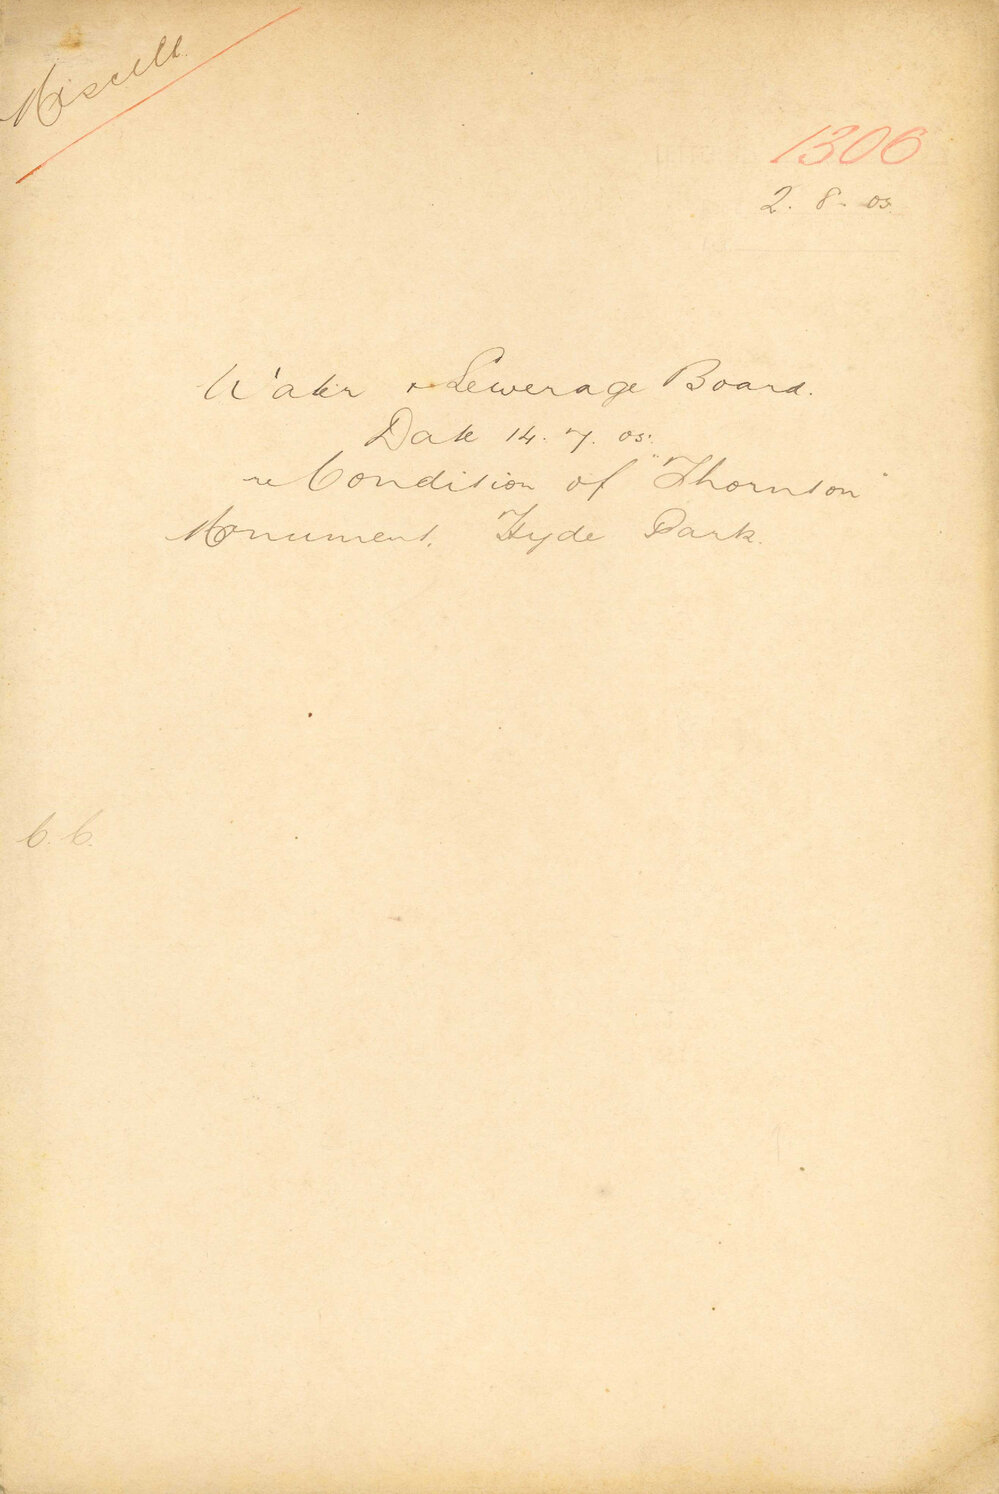 Miscell.
1306
2. 8. 05.
Water & Sewerage Board.
Date 14. 7. 05.
re Condition of "Thornton"
Monument, Hyde Park.
C. C.